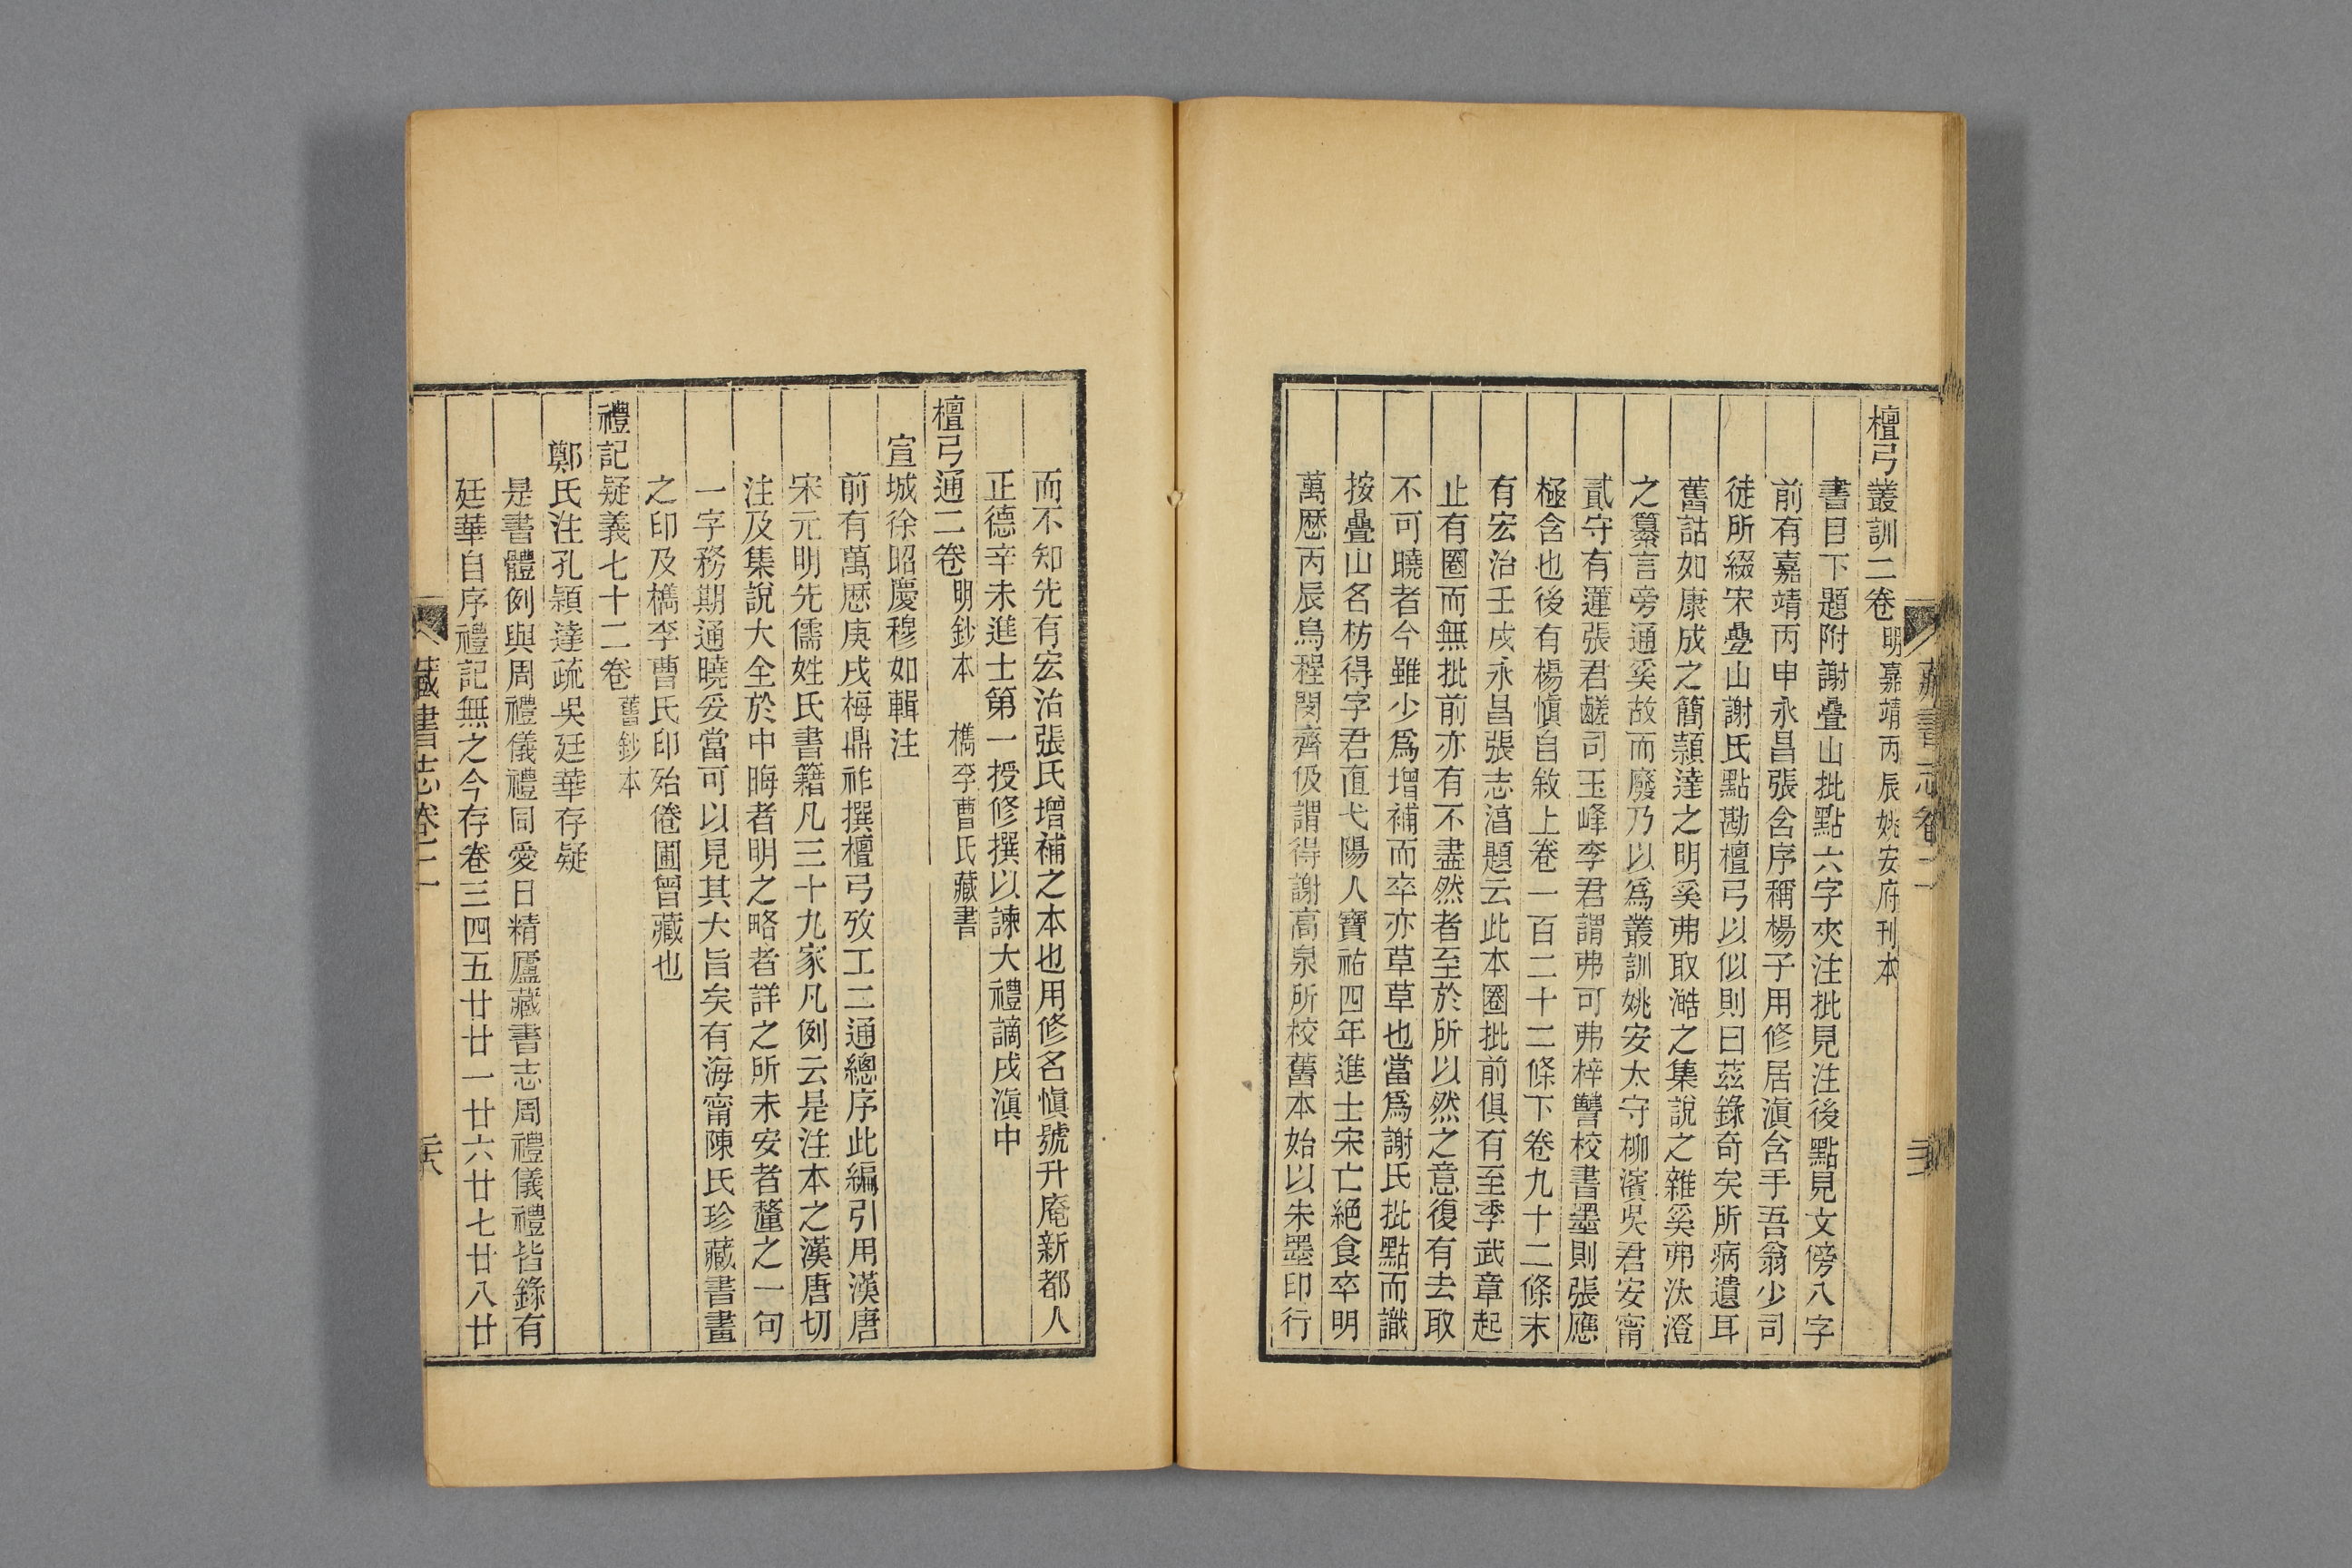 檀弓叢訓二卷 明嘉靖丙辰姚安府刊本
書目下題附謝疊山批點六字夾注批見注後點見文傍八字
前有嘉靖丙申永昌張含序稱楊子用修居滇含手吾翁少司
徒所綴宋疊山謝氏點勘檀弓以似則曰茲錄奇矣所病遺耳
舊詁如康成之簡頴達之明奚弗取澔之集說之雜奚弗汰澄
之纂言旁通奚故而廢乃以爲叢訓姚安太守柳濱吳君安甯
貳守有蓮張君鹺司玉峰李君謂弗可弗梓讐校書墨則張應
極含也後有楊愼自敘上卷一百二十二條下卷九十二條末
有宏治壬戌永昌張志淳題云此本圈批前俱有至季武章起
止有圈而無批前亦有不盡然者至於所以然之意復有去取
不可曉者今雖少爲增補而卒亦草草也當爲謝氏批點而識
按疊山名枋得字君直弋陽人寶祐四年進士宋亡絕食卒明
萬歷丙辰烏程閔齊伋謂得謝高泉所校舊本始以朱墨印行
而不知先有宏治張氏增補之本也用修名愼號升庵新都人
正德辛未進士第一授修撰以諫大禮謫戌滇中
檀弓通二卷 明鈔本 檇李曹氏藏書
宣城徐昭慶穆如輯注
前有萬歷庚戌梅鼎祚撰檀弓攷工二通總序此編引用漢唐
宋元明先儒姓氏書籍凡三十九家凡例云是注本之漢唐切
注及集說大全於中晦者明之略者詳之所未安者釐之一句
一字務期通曉妥當可以見其大旨矣有海甯陳氏珍藏書畫
之印及檇李曹氏印殆倦圃曾藏也
禮記疑義七十二卷 舊鈔本
鄭氏注孔穎達疏吳廷華存疑
是書體例與周禮儀禮同愛日精廬藏書志周禮儀禮皆錄有
廷華自序禮記無之今存卷三四五廿廿一廿六廿七廿八廿
藏書志卷二